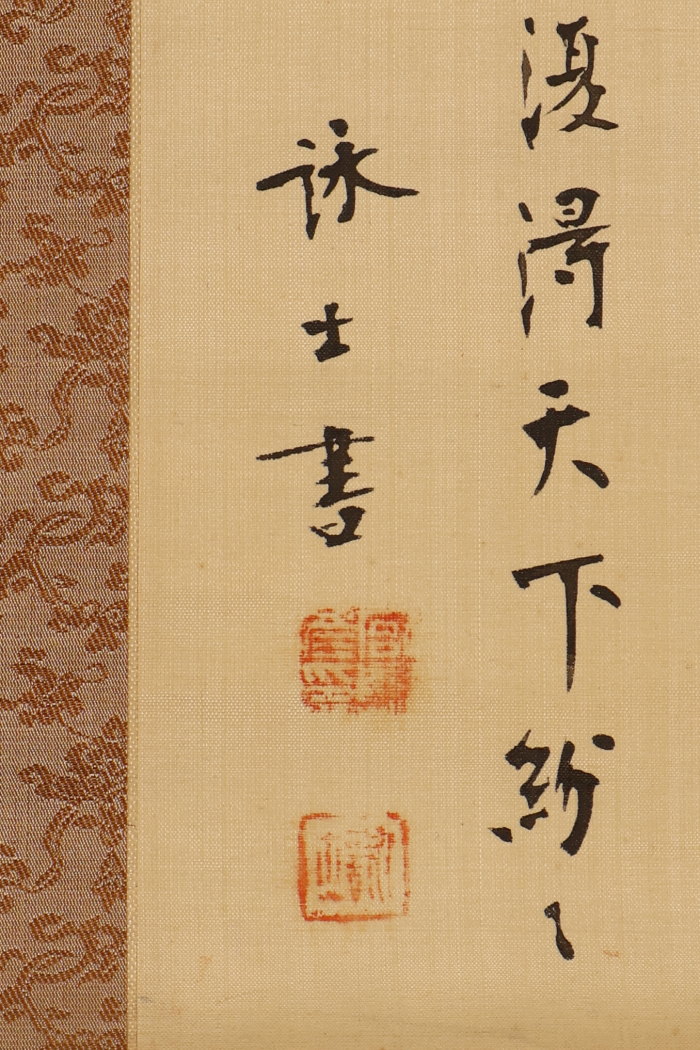 復得天下紛々
詠士書